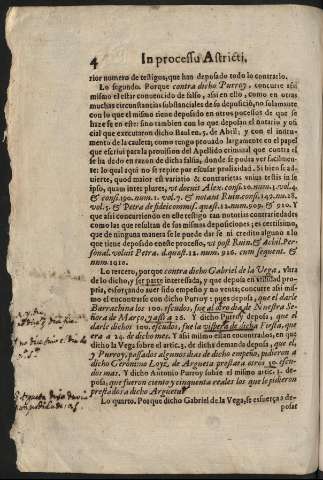 4 In processu Astricti,
rior numero de testigos, que han deposado todo lo contrario.
Lo segundo. Porque contra dicho Purroy, concurre assi
mismo el estar convencido de falso, assi en ello, como en otras
muchas circunstancias substanciales de su deposició, no solamente
con lo que el mismo tiene deposado en otros processos de que se
haze fe en este: sino tambien con lo que deposan el notario y ofi
cial que executaron dicho Baul en 5. de Abril; y con el instru-
mento de la cautela; como tengo provado largamente en el papel
que escriví para la provision del Apellido criminal que contra el
se ha dado en razon de dicha falsia, donde se podra ver facilmen-
te: lo qual aqui no se repite por escusar prolixidad. Si bien se ad-
vierte, quod maior est variatio & contrarietas unius testis in se
ipso, quam inter plures, ut docuit Alex. consi. 10. num. 1. vol. 4.
& consi. 190. num. 2. vol. 7. & notant Ruin. consi. 147. nu. 28.
vol. 5. & Petra de fideicommiss. quæst. 12. num. 909. & 910. Y
que assi concurriendo en este testigo tan notorias contrariedades
como las que resultan de sus mismas deposiciones; es certissimo,
que de ninguna manera se puede dar fe ni credito alguno a lo
que tiene deposado en este processo, ut post Ruin. &
sonal. voluit Petra. d. quæst. 12. num. 910. cum sequent. &
num. 1010.
Lo tercero, porque contra dicho Gabriel de la Vega, ultra
de lo dicho, y ser parte interessada, y que deposa en utilidad pro-
pria, esforçando aver sido empeño y no venta; concurre assi mis-
mo el encontrarse con dicho Purroy: pues deposa, que el darle
Barrachina los 100. escudos, fue al otro dia de Nuestra Se-
ñora de Março, y assi a 26. Y dicho Purroy deposa, que el
darle dichos 100. escudos, fue la vispera de dicha Fiesta, que
era a 24. de dicho mes. Y assi mismo estan encontrados, en que
dicho la Vega sobre el artic. 3. de dicha demanda deposa, que el,
y Purroy, passados algunos dias de dicho empeño, pidieron a
dicho Geronimo Loyz, de Argueta prestara otros 50. escu-
dos mas. Y dicho Antonio Purroy sobre el mismo artic. 3. de-
posa, que fueron ciento y cinquenta reales los que le pidieron
prestados a dicho Argueta.
Lo quarto. Porque dicho Gabriel de la Vega, se esfuerça a de-
posar